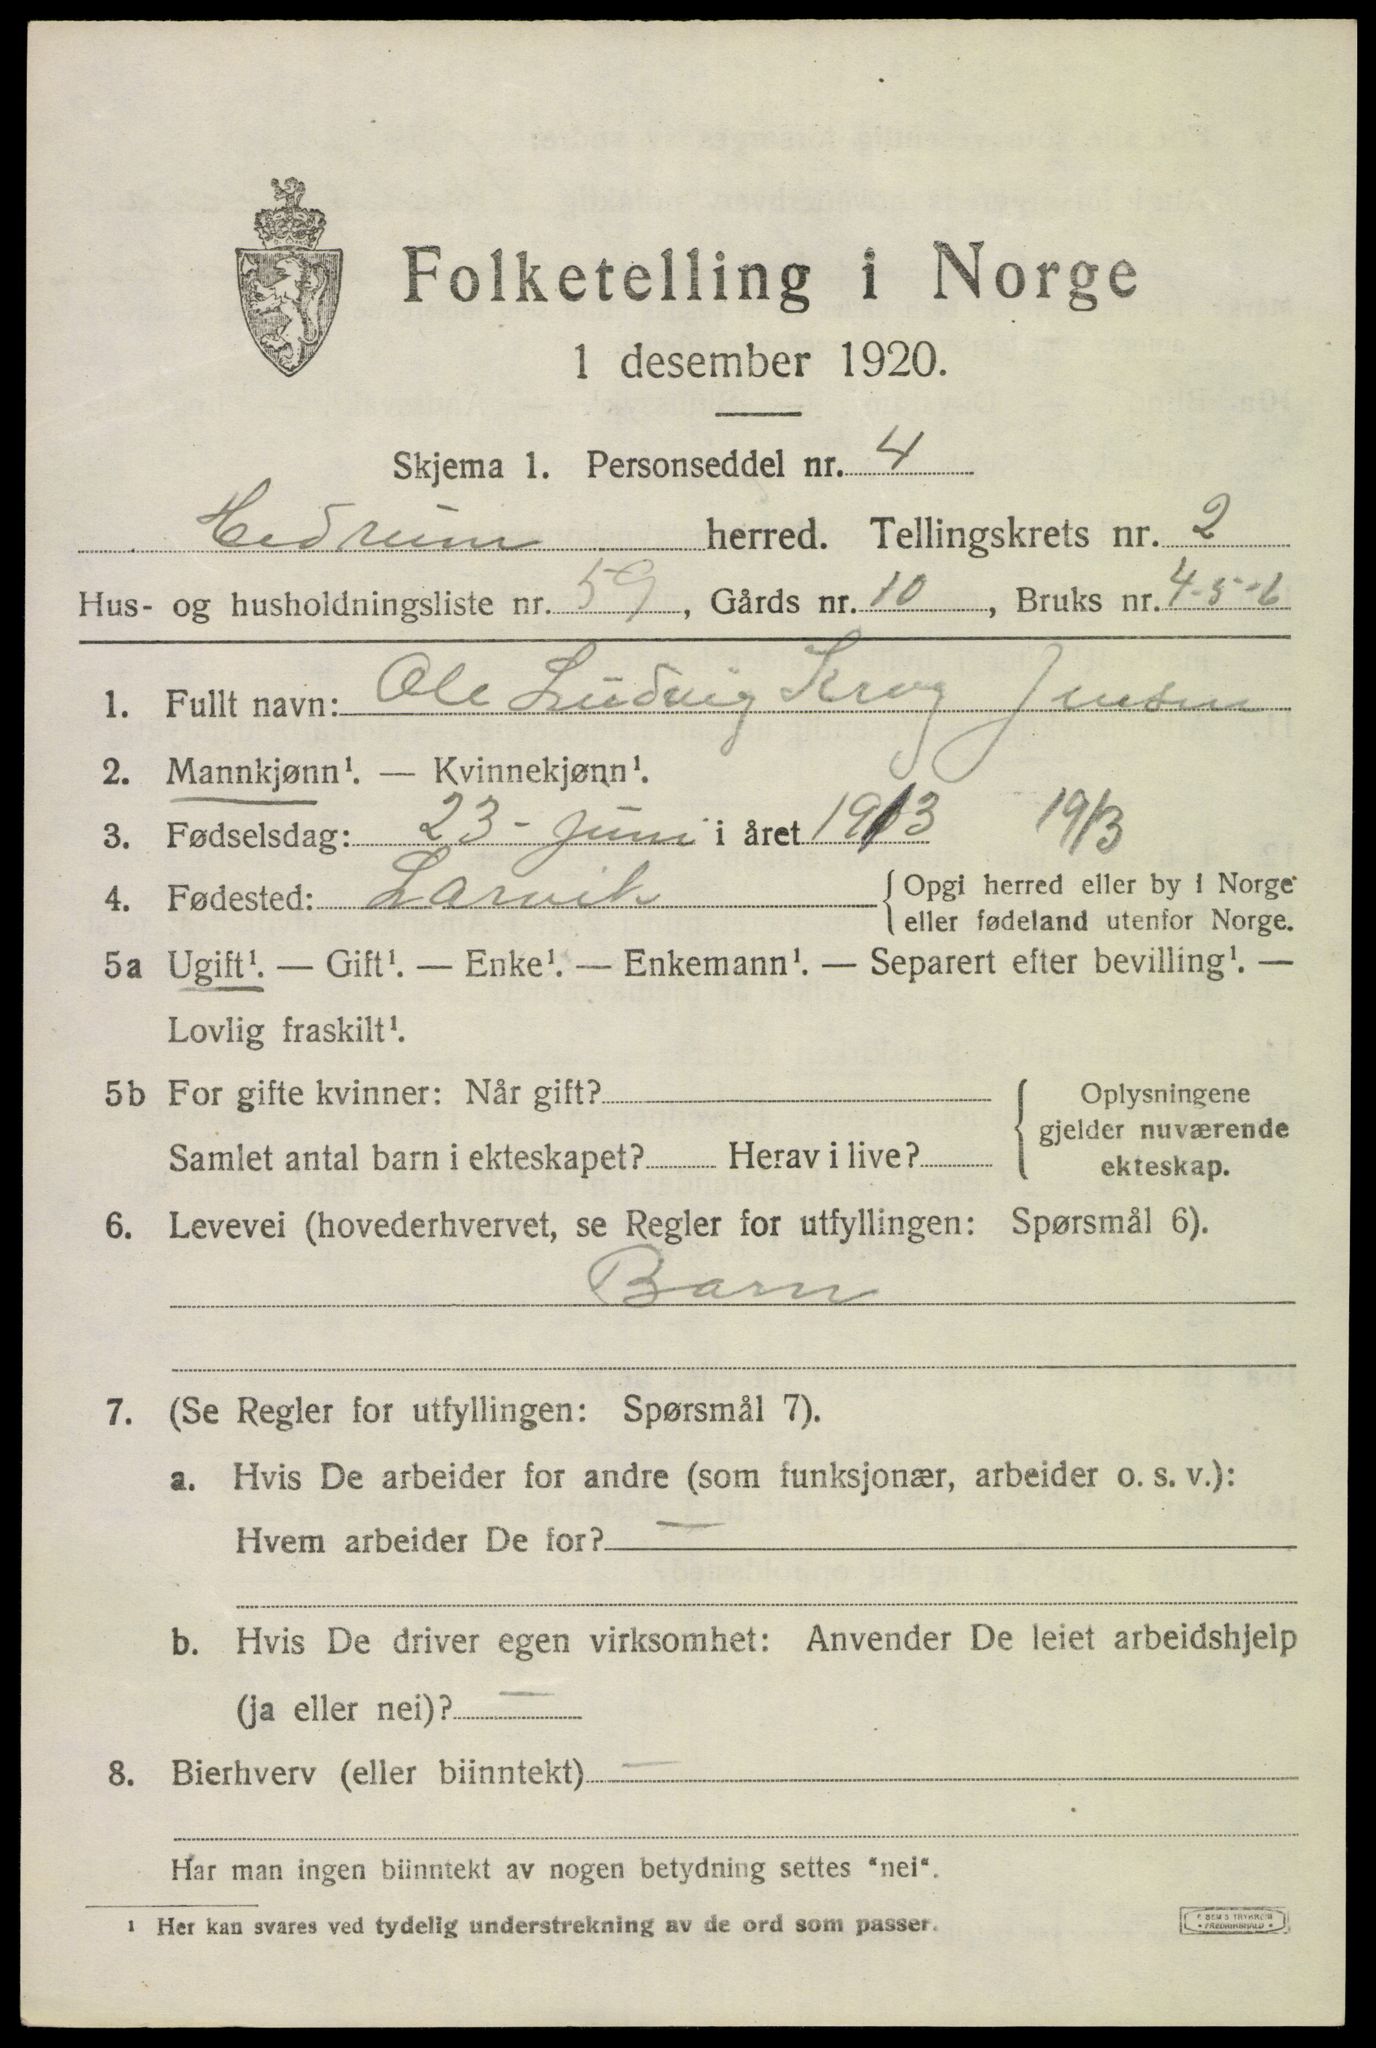 Folketelling i Norge
1 desember 1920.
Skjema 1. Personseddel nr. 4
Hedrum herred. Tellingskrets nr. 2
Hus- og husholdningsliste nr. 59, Gårds nr. 10, Bruks nr. 4-5-6
1. Fullt navn: Ole Ludvig Krog Jensen
2. Mannkjønn¹. — Kvinnekjønn¹.
3. Fødselsdag: 23 - juni i året 1913 1913
4. Fødested: Larvik { Opgi herred eller by i Norge
eller fødeland utenfor Norge.
5a Ugift¹. — Gift¹. — Enke¹. — Enkemann¹. — Separert efter bevilling¹. —
Lovlig fraskilt¹.
5b For gifte kvinner: Når gift?
Samlet antal barn i ekteskapet? Herav i live?
{ Oplysningene
gjelder nuværende
ekteskap.
6. Levevei (hovederhvervet, se Regler for utfyllingen: Spørsmål 6).
Barn
7. (Se Regler for utfyllingen: Spørsmål 7).
a. Hvis De arbeider for andre (som funksjonær, arbeider o. s. v.):
Hvem arbeider De for? —
b. Hvis De driver egen virksomhet: Anvender De leiet arbeidshjelp
(ja eller nei)? —
8. Bierhverv (eller biinntekt) —
Har man ingen biinntekt av nogen betydning settes "nei".
¹ Her kan svares ved tydelig understrekning av de ord som passer.